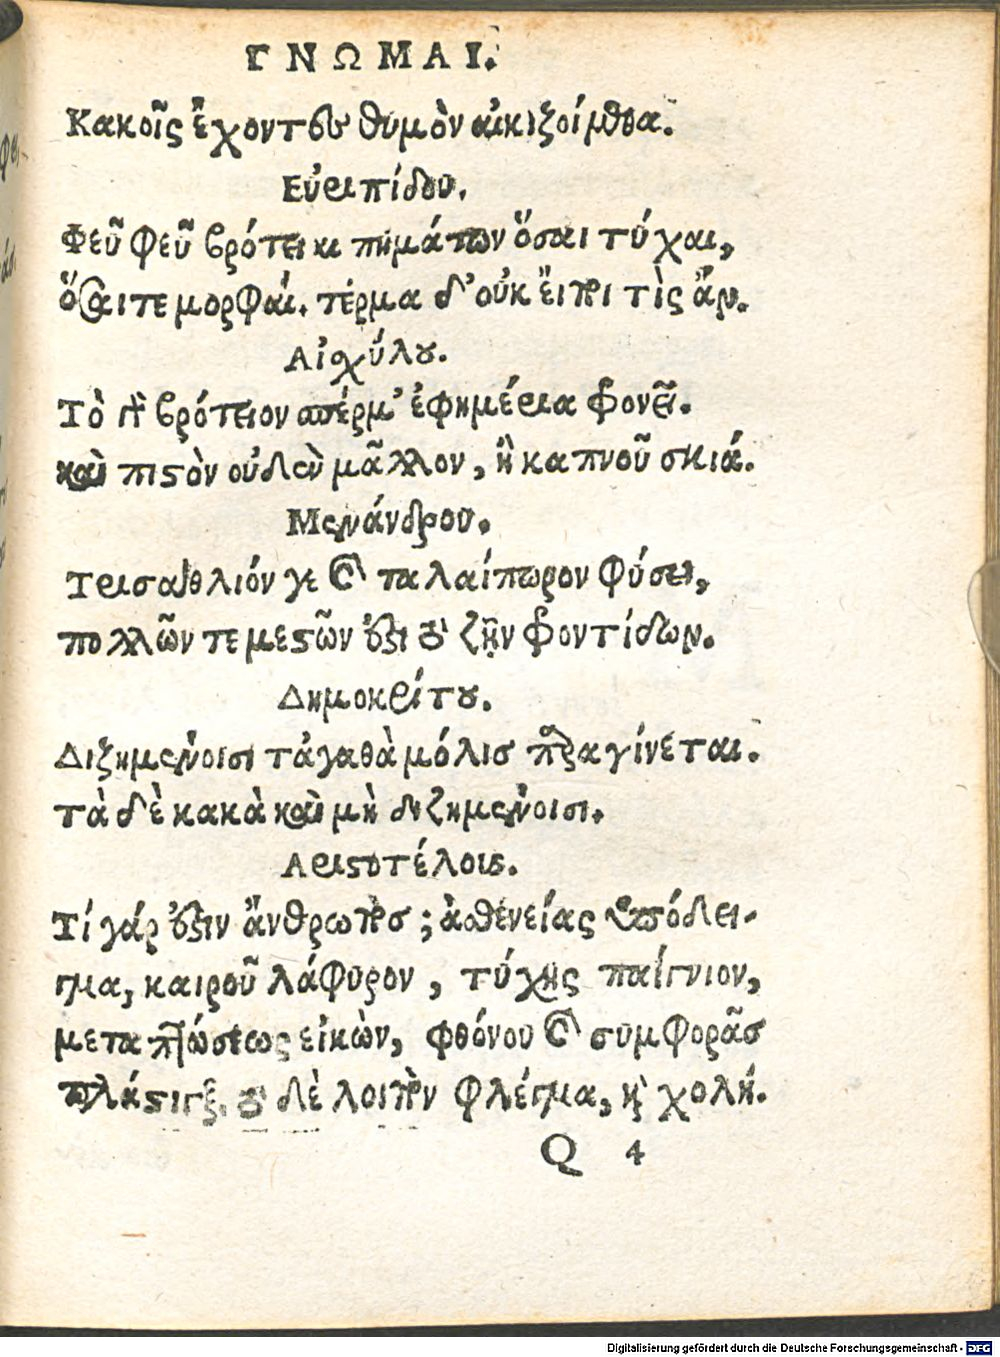 ΓΝΩΜΑΙ.
Κακοῖς ἔχοντες θυμὸν αἰκιζοίμεθα.
Εὐριπίδου.
Φεῦ φεῦ βρότειαι πημάτων ὅσαι τύχαι,
ὅσαι τε μορφαί. τέρμα δ' οὐκ εἴποι τὶς ἄν.
Αἰσχύλου.
Τὸ γὰρ βρότειον σπέρμ' ἐφημέρια φρονεῖ.
καὶ πιστὸν οὐδὲν μᾶλλον, ἢ καπνοῦ σκιά.
Μενάνδρου.
Τρισάθλιόν γε καὶ ταλαίπωρον φύσει,
πολλῶν τε μεστῶν ἐστι τὸ ζῆν φροντίδων.
Δημοκρίτου.
Διζημένοισι τἀγαθὰ μόλισ παραγίνεται.
τὰ δὲ κακὰ καὶ μὴ διζημένοισι.
Αριστοτέλους.
Τί γάρ ἐστιν ἄνθρωποσ; ἀσθενείας ὑπόδει-
γμα, καιροῦ λάφυρον, τύχης παίγνιον,
μεταπτώσεως εἰκὼν, φθόνου καὶ συμφορᾶσ
πλάστιγξ, τὸ δὲ λοιπὸν φλέγμα, καὶ χολή.
Q 4
Digitalisierung gefördert durch die Deutsche Forschungsgemeinschaft - DFG